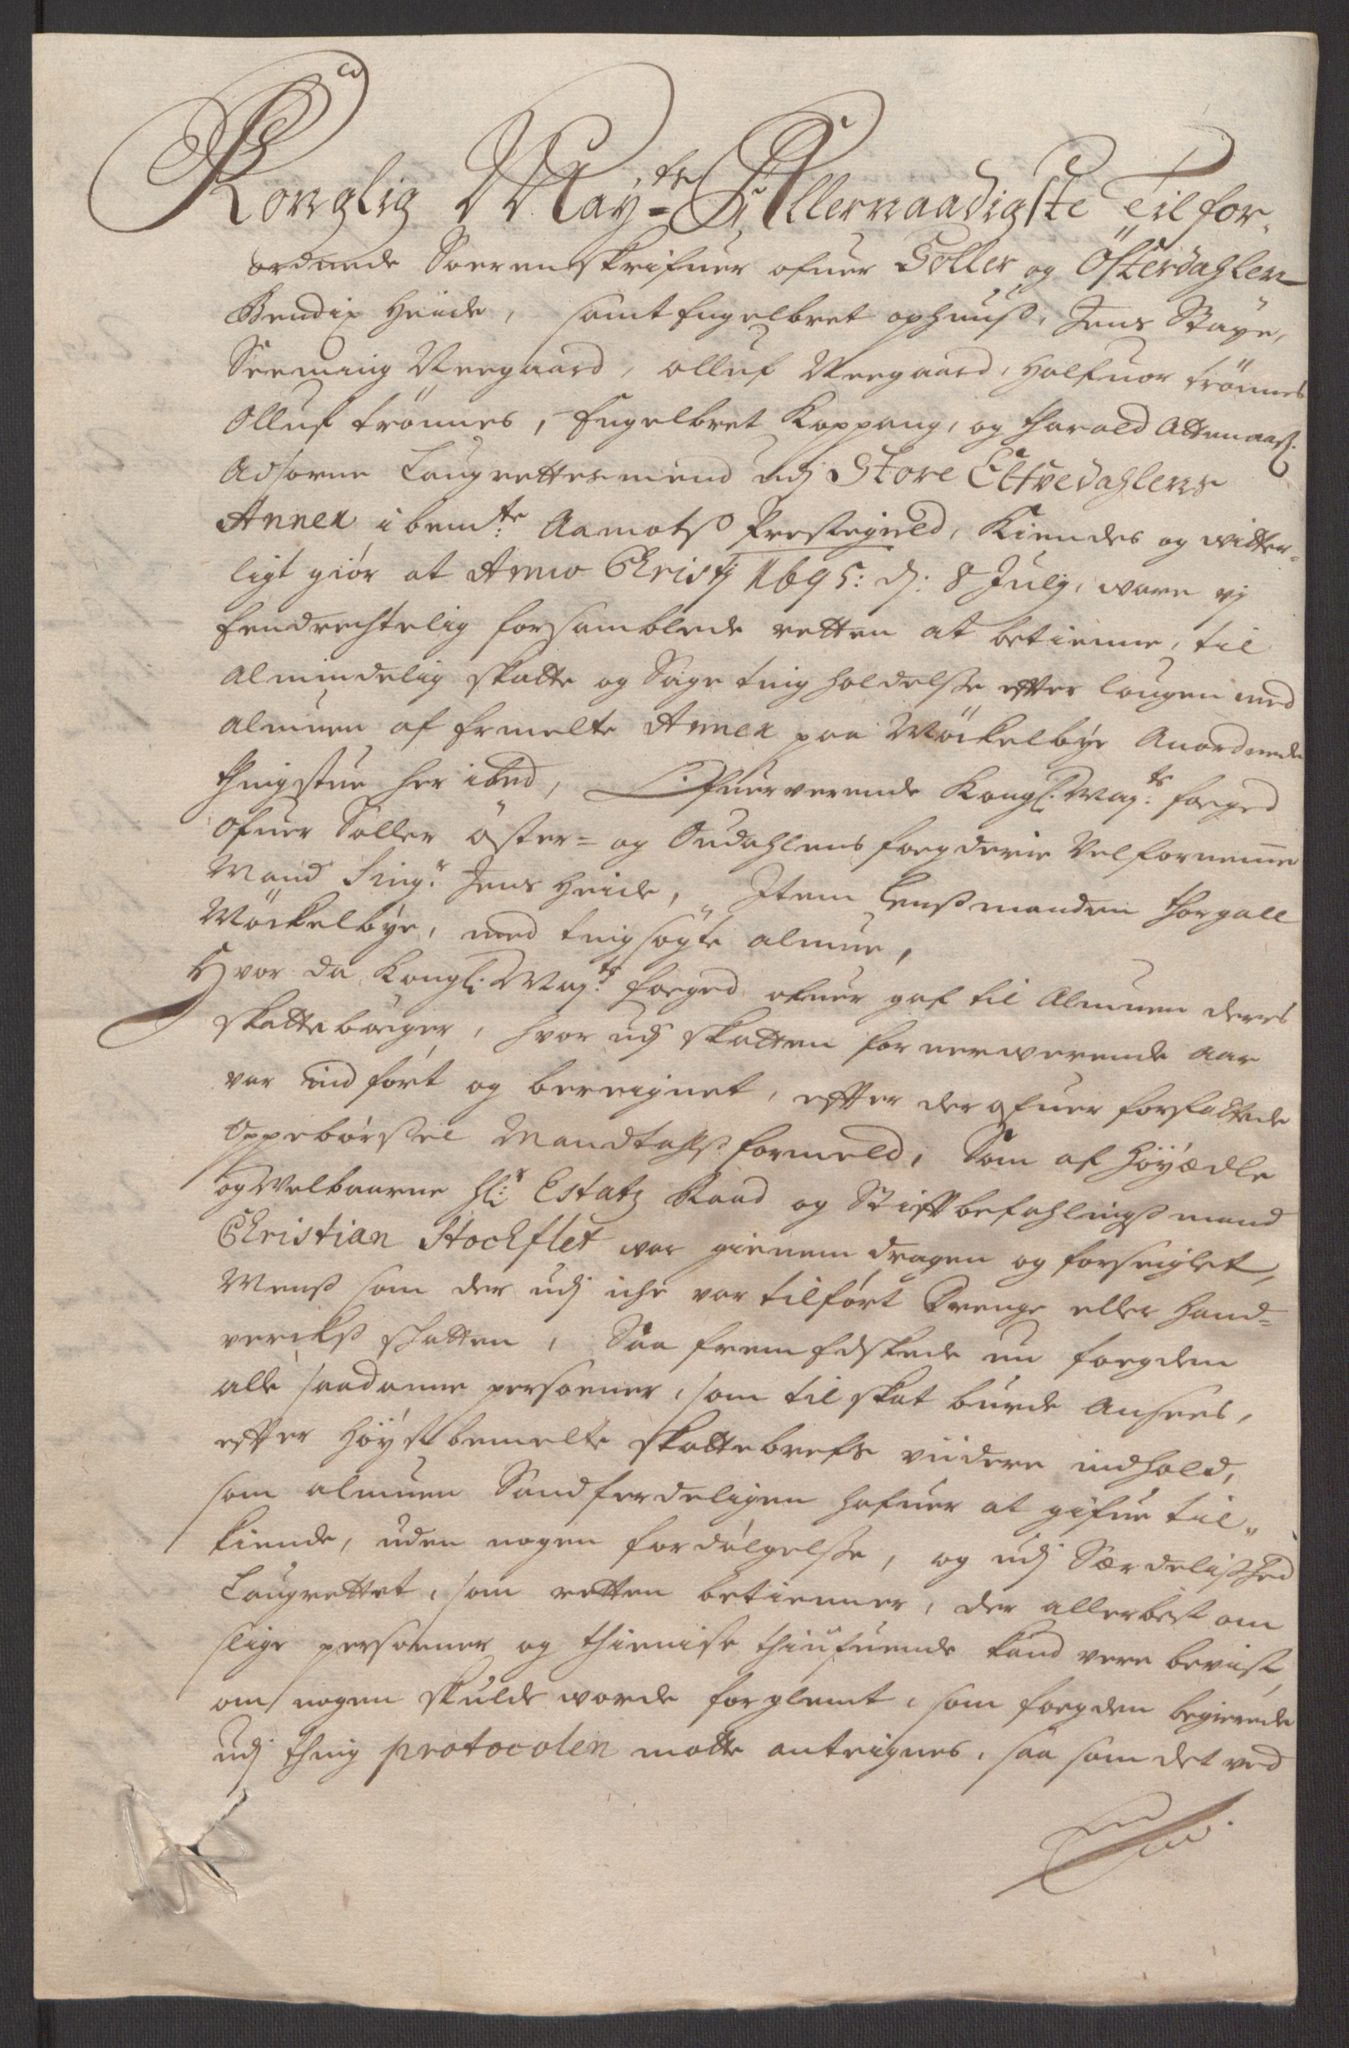 Konglig May:ts Allernaadigste Tilfor-
ordnede Sorenskrifuer ofuer Soller og Østerdahlen
Bendix Heide, samt Engelbret ophuuß, Jens Staye,
Neegaard, olluf Neegaard, Halfuor trønnes
Olluf trønnes, Engelbret Koppang, og Harald Attenaaß:
Adsorne Laugrettesmend udj Store Elfvedahlens
Annex i bem:te Aamotß Prestegield, Kiendes og vitter-
ligt giør at Anno Christj 1695: d: 8 Julij, ware vj
Eendrechtelig forsamblede retten at betienne, til
almindelig skatte og Sage ting holdelße efter laugen med
almuen af ermelte Annex paa Møckelbye Anordnede
thingstue her ibmd, Ofuerverende Kongl: May:ts foeged
Ofuer Soller Øster- og Oudahlens foegderie Velfornemme
Mand Sing:r Jens Heide, Item Lenßmanden thorgall
Møckelbye, med tingsøgte almue,
Hvor da Kongl: May:ts foeged ofuer gaf til Almuen deres
skattebøeger, hvor udj skatten for nerwerende aar
var indført og bereignet, efter der ofuer forfattede
Oppebørßel Mandtahlß formeld, Som af Høyædle
og Velbaarne Hl:r Estatz Raad og Stiftbefahlingßmand
Christian Stockflet war gienemdragen og forseiglet,
Menß som der udj iche var tilført Drenge eller Hand-
verckß skatten, Saa fremEdskede nu foegden
alle saadanne persoener, som til skat burde Ansees,
efter Høystbemelte skattebrefs viidere indhold,
som almuen Sandferdeligen hafuer at gifue til-
kiende, uden nogen fordølgelße, og udj Særdelißhed
Laugrettet, som retten betienner, der allerbest om
slige persoener og thieniste thiufuende kand vere bevist
om nogen skulde worde forglemt, som foegden begierede
udj thing protocolen motte antegnes, saa som det ved